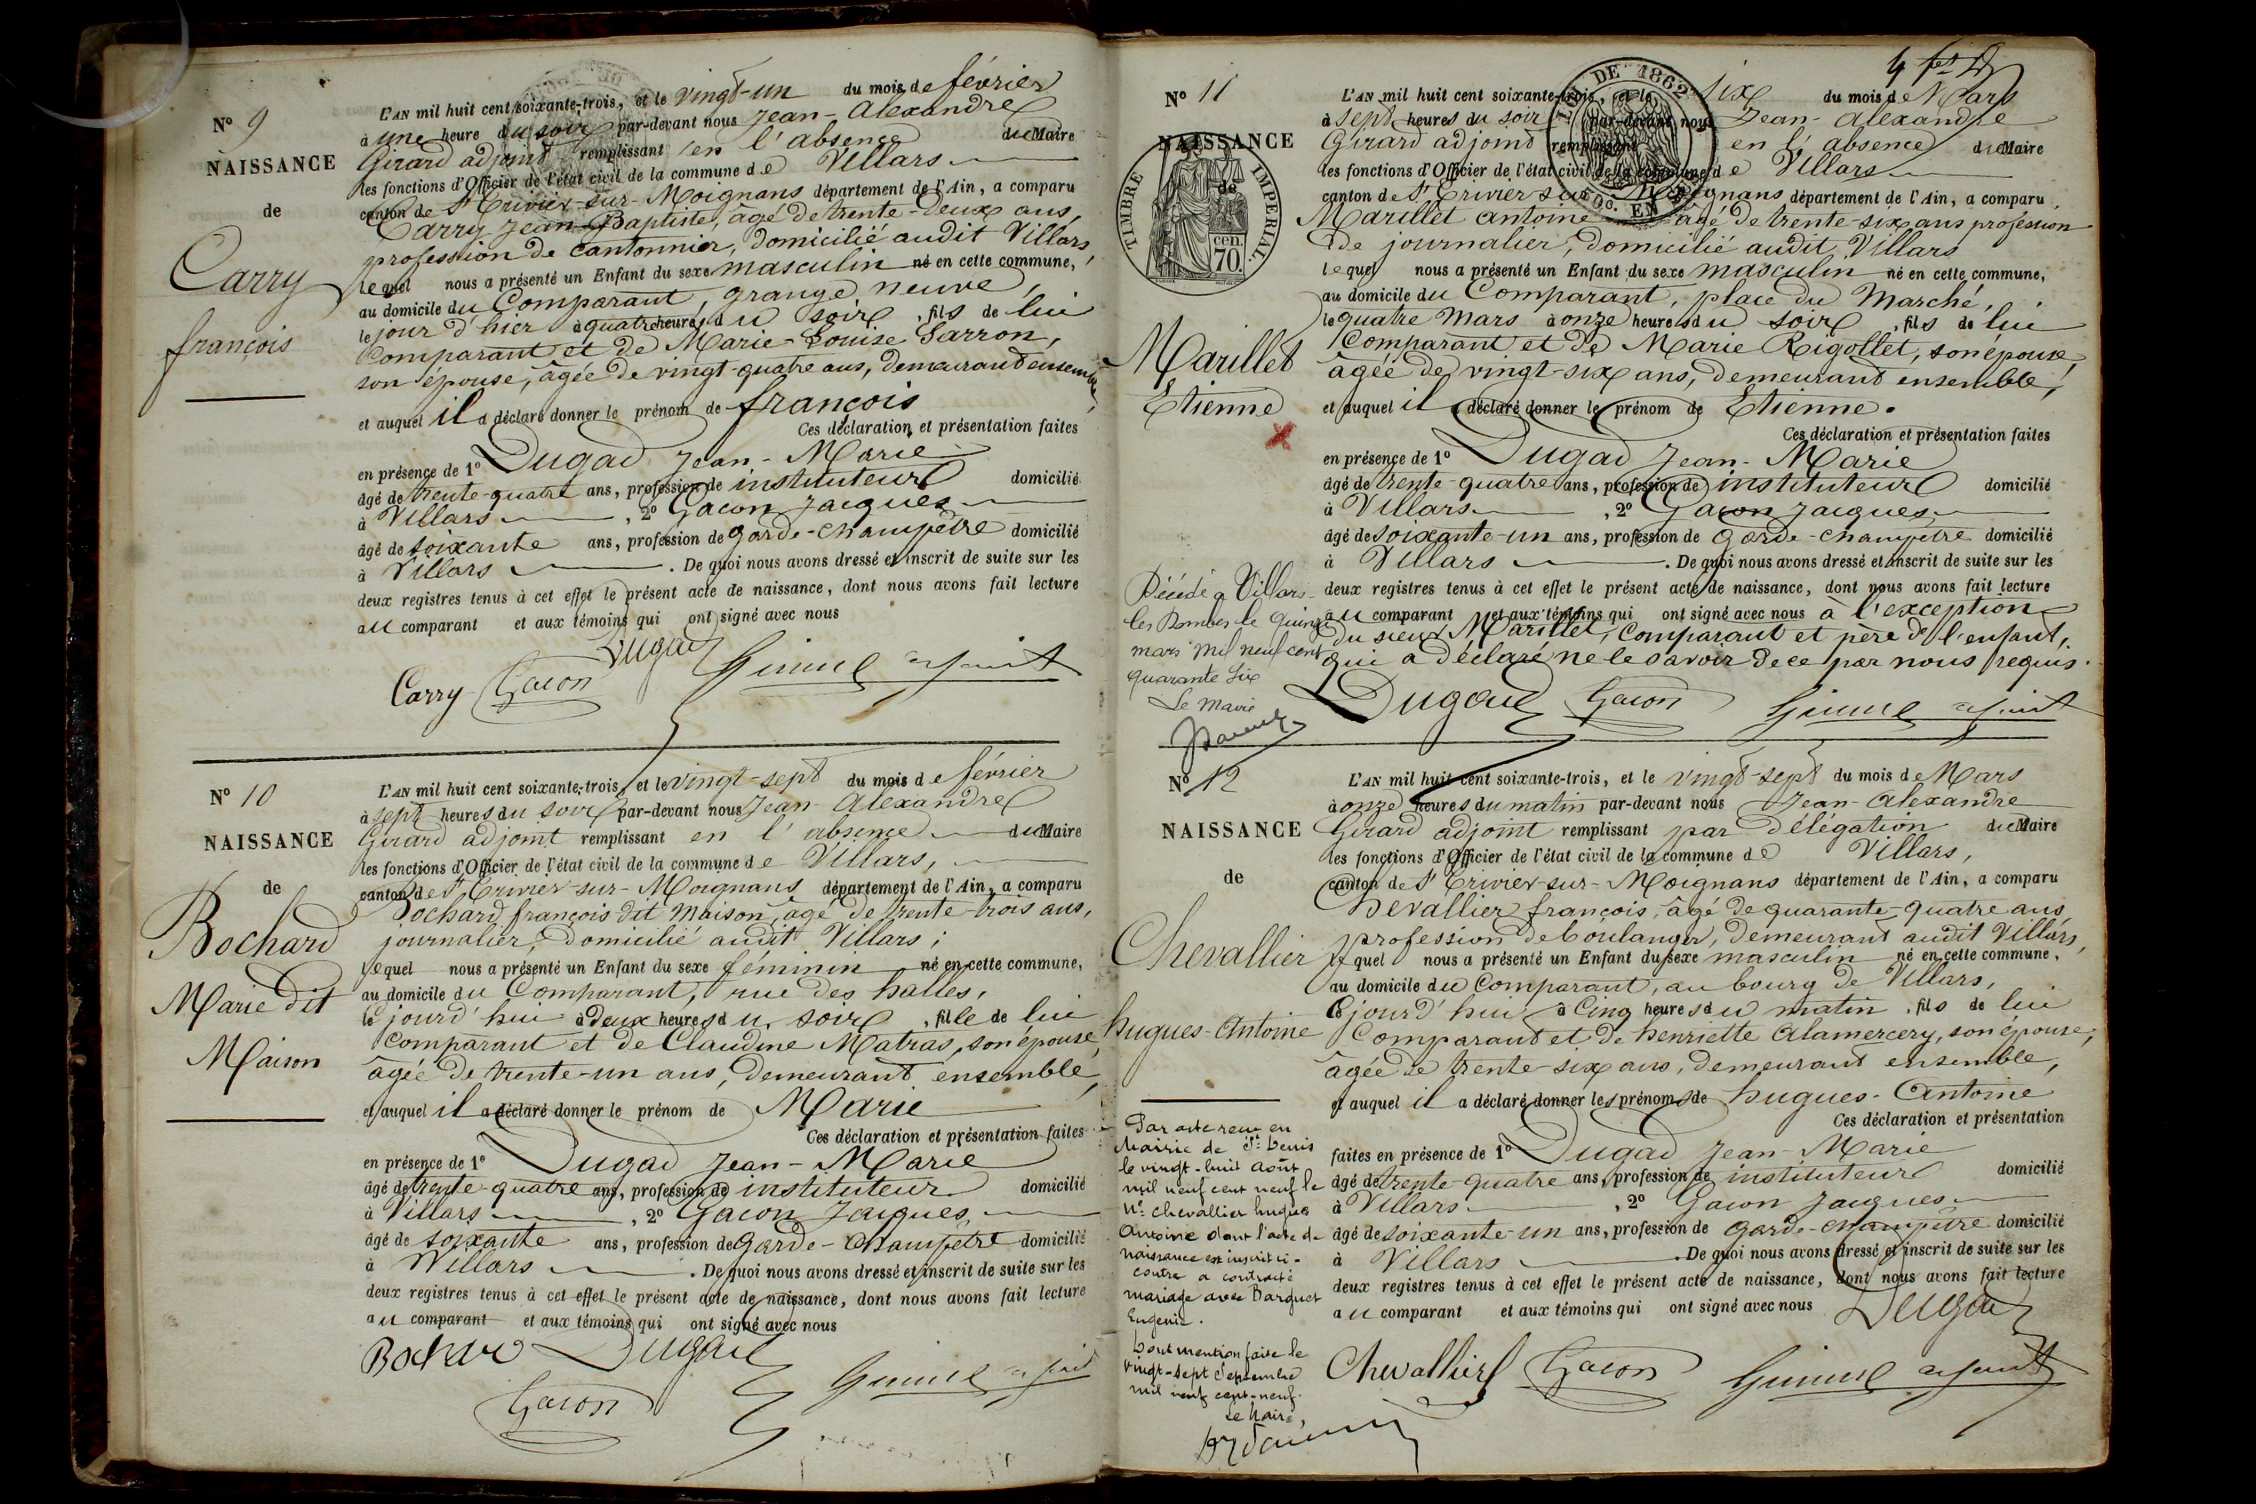 N° 9
NAISSANCE
de
Carry
françois
L'AN mil huit cent soixante-trois, et le vingt-un du mois de février
à une heure du soir par-devant nous Jean-Alexandre
Girard adjoint remplissant en l'absence du Maire
les fonctions d'Officier de l'état civil de la commune de Villars
canton de St Trivier-sur-Moignans département de l'Ain, a comparu
Carry Jean-Baptiste, âgé de trente-deux ans,
profession de cantonnier, domicilié audit Villars,
lequel nous a présenté un Enfant du sexe masculin né en cette commune,
au domicile du Comparant, grange neuve,
le jour d'hier à quatre heures du soir, fils de lui
Comparant et de Marie-Louise Sarron,
son épouse, âgée de vingt-quatre ans, demeurant ensemble,
et auquel il a déclaré donner le prénom de françois
Ces déclaration et présentation faites
en présence de 1° Dugad Jean-Marie
âgé de trente-quatre ans, profession de instituteur domicilié
à Villars, 2° Gacon Jacques
âgé de soixante ans, profession de garde-champêtre domicilié
à Villars. De quoi nous avons dressé et inscrit de suite sur les
deux registres tenus à cet effet le présent acte de naissance, dont nous avons fait lecture
au comparant et aux témoins qui ont signé avec nous
Dugad
Carry Gacon Girard adjoint
N° 10
NAISSANCE
de
Bochard
Marie dit
Maison
L'AN mil huit cent soixante-trois, et le vingt-sept du mois de février
à sept heures du soir par-devant nous Jean-Alexandre
Girard adjoint remplissant en l'absence du Maire
les fonctions d'Officier de l'état civil de la commune de Villars,
canton de St Trivier-sur-Moignans département de l'Ain, a comparu
Bochard françois dit Maison, âgé de trente-trois ans,
journalier, domicilié audit Villars;
lequel nous a présenté un Enfant du sexe féminin né en cette commune,
au domicile du Comparant, rue des halles,
le jourd'hui à deux heures du soir, fille de lui
Comparant et de Claudine Matras, son épouse,
âgée de trente-un ans, demeurant ensemble,
et auquel il a déclaré donner le prénom de Marie
Ces déclaration et présentation faites
en présence de 1° Dugad Jean-Marie
âgé de trente-quatre ans, profession de instituteur domicilié
à Villars, 2° Gacon Jacques
âgé de soixante ans, profession de garde-champêtre domicilié
à Villars. De quoi nous avons dressé et inscrit de suite sur les
deux registres tenus à cet effet le présent acte de naissance, dont nous avons fait lecture
au comparant et aux témoins qui ont signé avec nous
Bochard Dugad
Gacon Girard adjoint
N° 11
NAISSANCE
de
TIMBRE IMPERIAL
70 cen.
Marillet
Etienne
DE 1862
L'AN mil huit cent soixante-trois, et le six du mois de Mars
à sept heures du soir par-devant nous Jean-Alexandre
Girard adjoint remplissant en l'absence du Maire
les fonctions d'Officier de l'état civil de la commune de Villars
canton de St Trivier sur Moignans département de l'Ain, a comparu
Marillet antoine âgé de trente-six ans profession
de journalier, domicilié audit Villars
lequel nous a présenté un Enfant du sexe masculin né en cette commune,
au domicile du Comparant, place du Marché,
le quatre Mars à onze heures du soir, fils de lui
Comparant et de Marie Rigollet, son épouse,
âgée de vingt-six ans, demeurant ensemble,
et auquel il a déclaré donner le prénom de Etienne.
Ces déclaration et présentation faites
en présence de 1° Dugad Jean-Marie
âgé de trente-quatre ans, profession de instituteur domicilié
à Villars, 2° Gacon Jacques
âgé de soixante-un ans, profession de garde-champêtre domicilié
à Villars. De quoi nous avons dressé et inscrit de suite sur les
deux registres tenus à cet effet le présent acte de naissance, dont nous avons fait lecture
au comparant et aux témoins qui ont signé avec nous à l'exception
du sieur Marillet, comparant et père de l'enfant,
qui a déclaré ne le savoir de ce par nous requis.
Dugad Gacon Girard adjoint
Décédé à Villars
les Dombes le quinze
mars mil neuf cent
quarante six
Le Maire
N° 12
NAISSANCE
de
Chevallier
hugues-Antoine
L'AN mil huit cent soixante-trois, et le vingt-sept du mois de Mars
à onze heures du matin par-devant nous Jean-Alexandre
Girard adjoint remplissant par délégation du Maire
les fonctions d'Officier de l'état civil de la commune de Villars,
canton de St Trivier-sur-Moignans département de l'Ain, a comparu
Chevallier françois, âgé de quarante-quatre ans
profession de boulanger, demeurant audit Villars,
lequel nous a présenté un Enfant du sexe masculin né en cette commune,
au domicile du Comparant, au bourg de Villars,
le jourd'hui à Cinq heures du matin, fils de lui
Comparant et de henriette Alamercery, son épouse,
âgée de trente-six ans, demeurant ensemble,
et auquel il a déclaré donner les prénoms de hugues-Antoine
Ces déclaration et présentation
faites en présence de 1° Dugad Jean-Marie
âgé de trente-quatre ans, profession de instituteur domicilié
à Villars, 2° Gacon Jacques
âgé de soixante-un ans, profession de garde-champêtre domicilié
à Villars. De quoi nous avons dressé et inscrit de suite sur les
deux registres tenus à cet effet le présent acte de naissance, dont nous avons fait lecture
au comparant et aux témoins qui ont signé avec nous Dugad
Chevallier Gacon Girard adjoint
Par acte reçu en
Mairie de St Denis
le vingt-huit Août
mil neuf cent neuf le
Sr Chevallier hugues
Antoine dont l'acte de
naissance est inscrit ci-
contre a contracté
mariage avec Barquet
Eugénie.
Dont mention faite le
vingt-sept Septembre
mil neuf cent-neuf.
Le Maire,